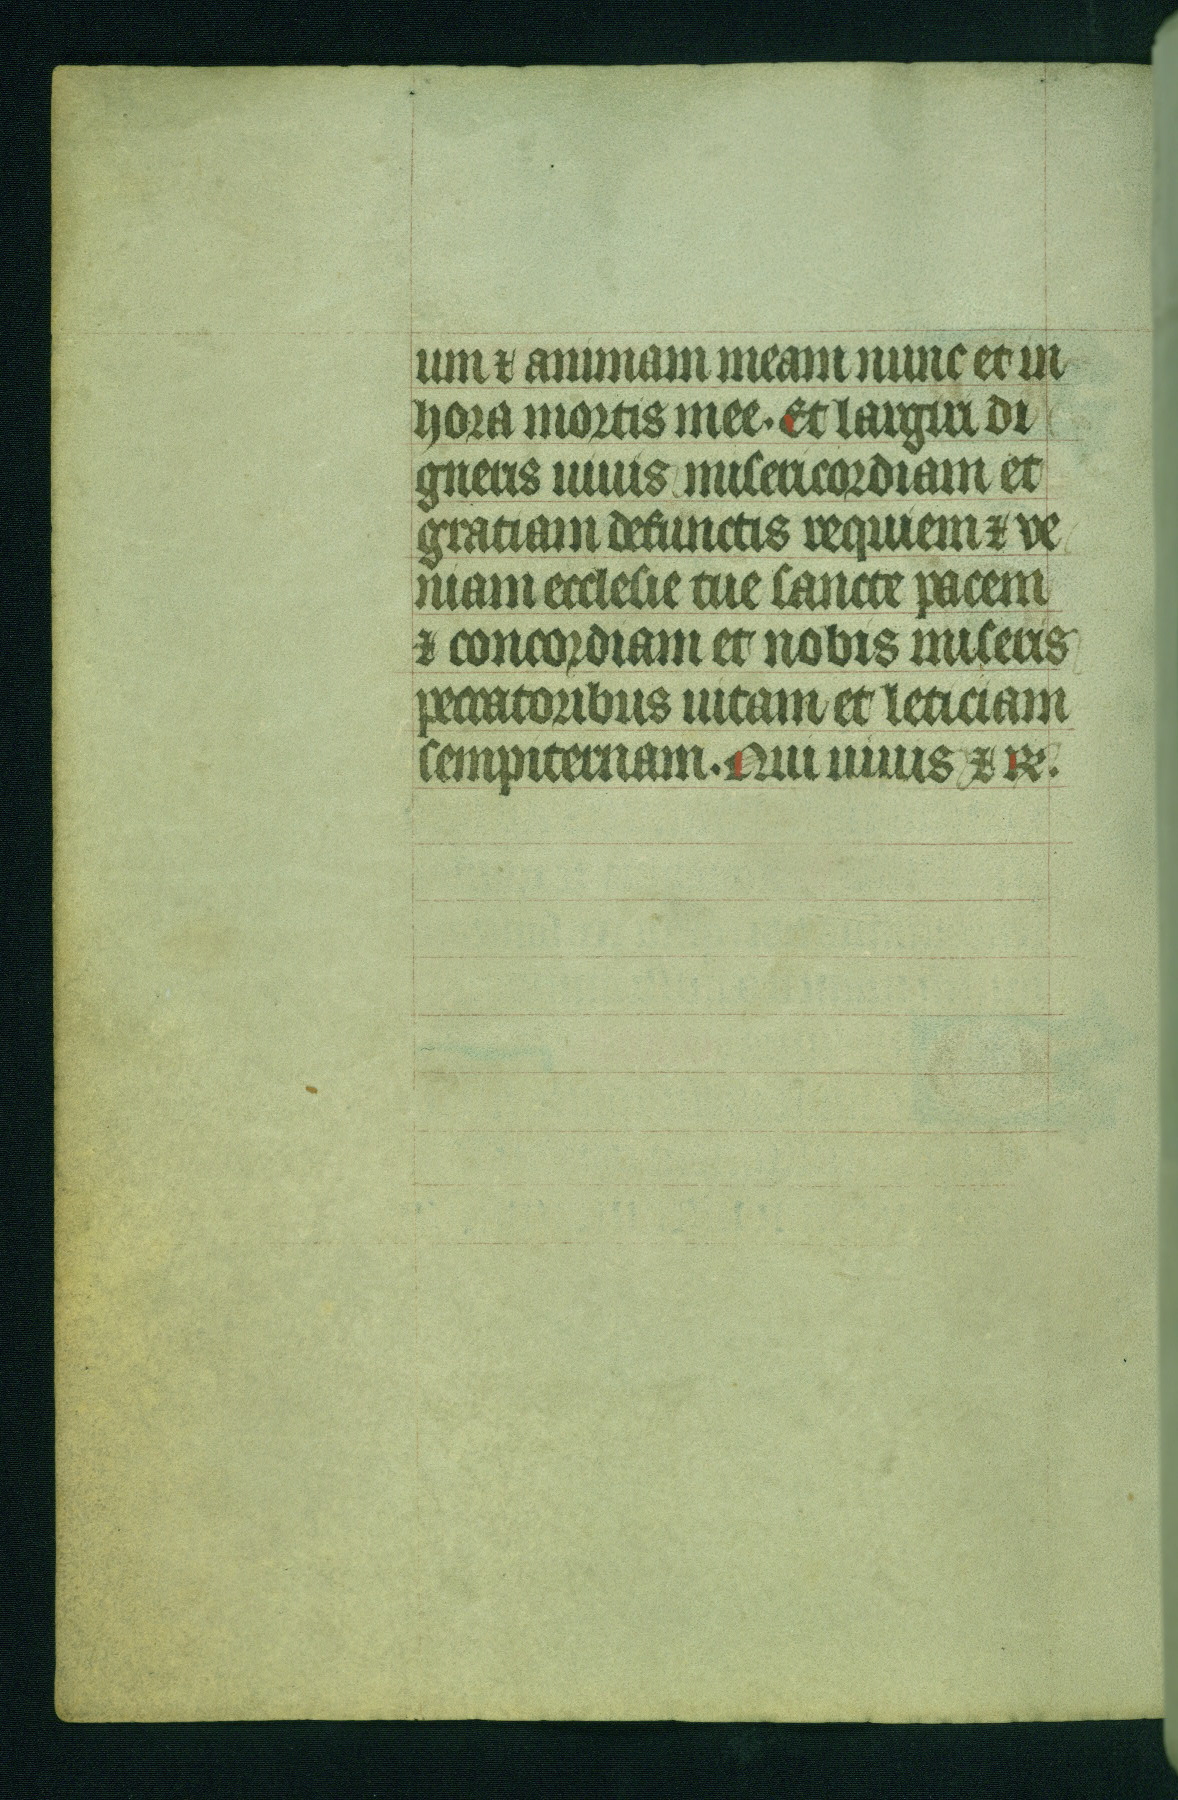 um ⁊ animam meam nunc et in
hora mortis mee. Et largiri di
gneris uiuis misericordiam et
gratiam defunctis requiem ⁊ ve
niam ecclesie tue sancte pacem
⁊ concordiam et nobis miseris
peccatoribus uitam et leticiam
sempiternam. Qui uiuis ⁊ rẜ.